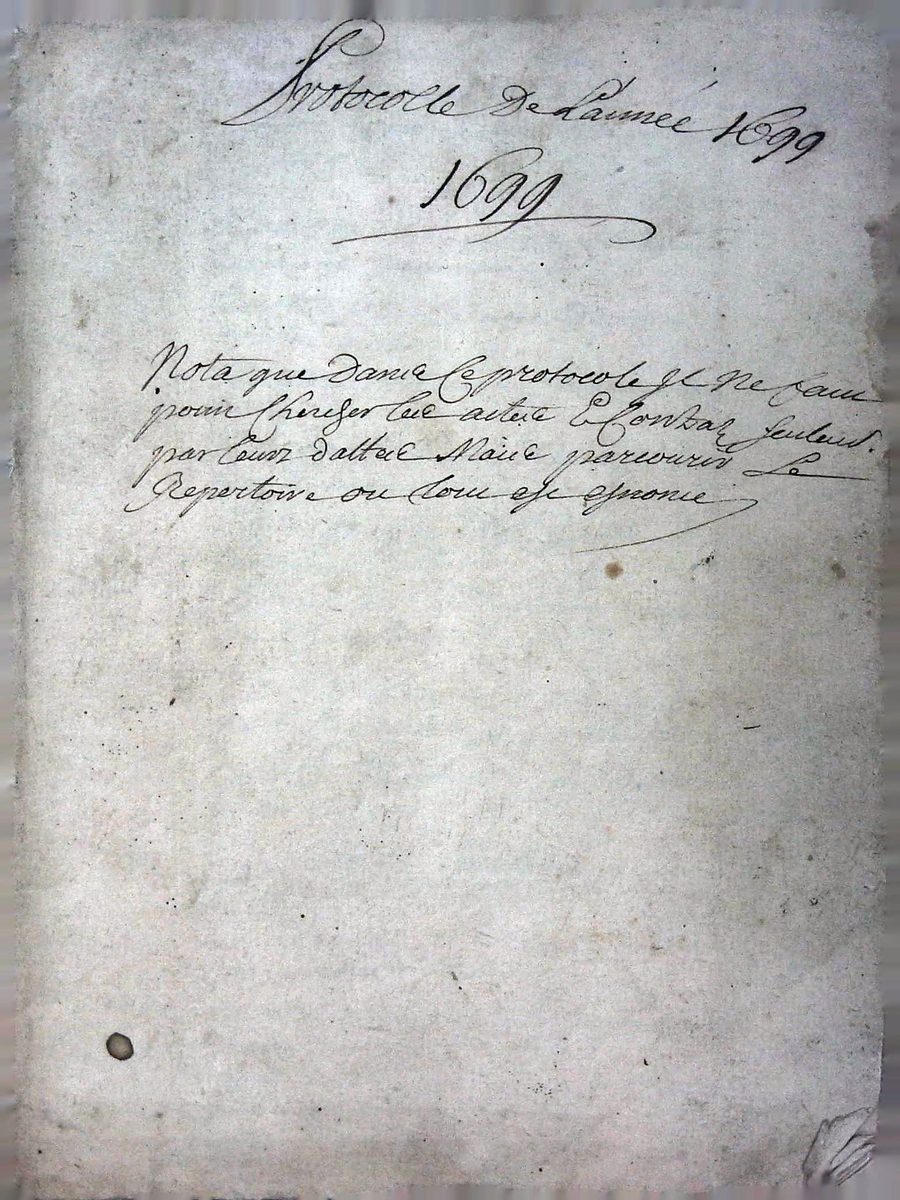 Protocolle De L'année 1699
1699
Nota que dans Ce protocole Il Ne faut
point Chercher les actes Et Contraz seulemt.
par leurs dattes Mais parcourir Le
Repertoire ou tout est